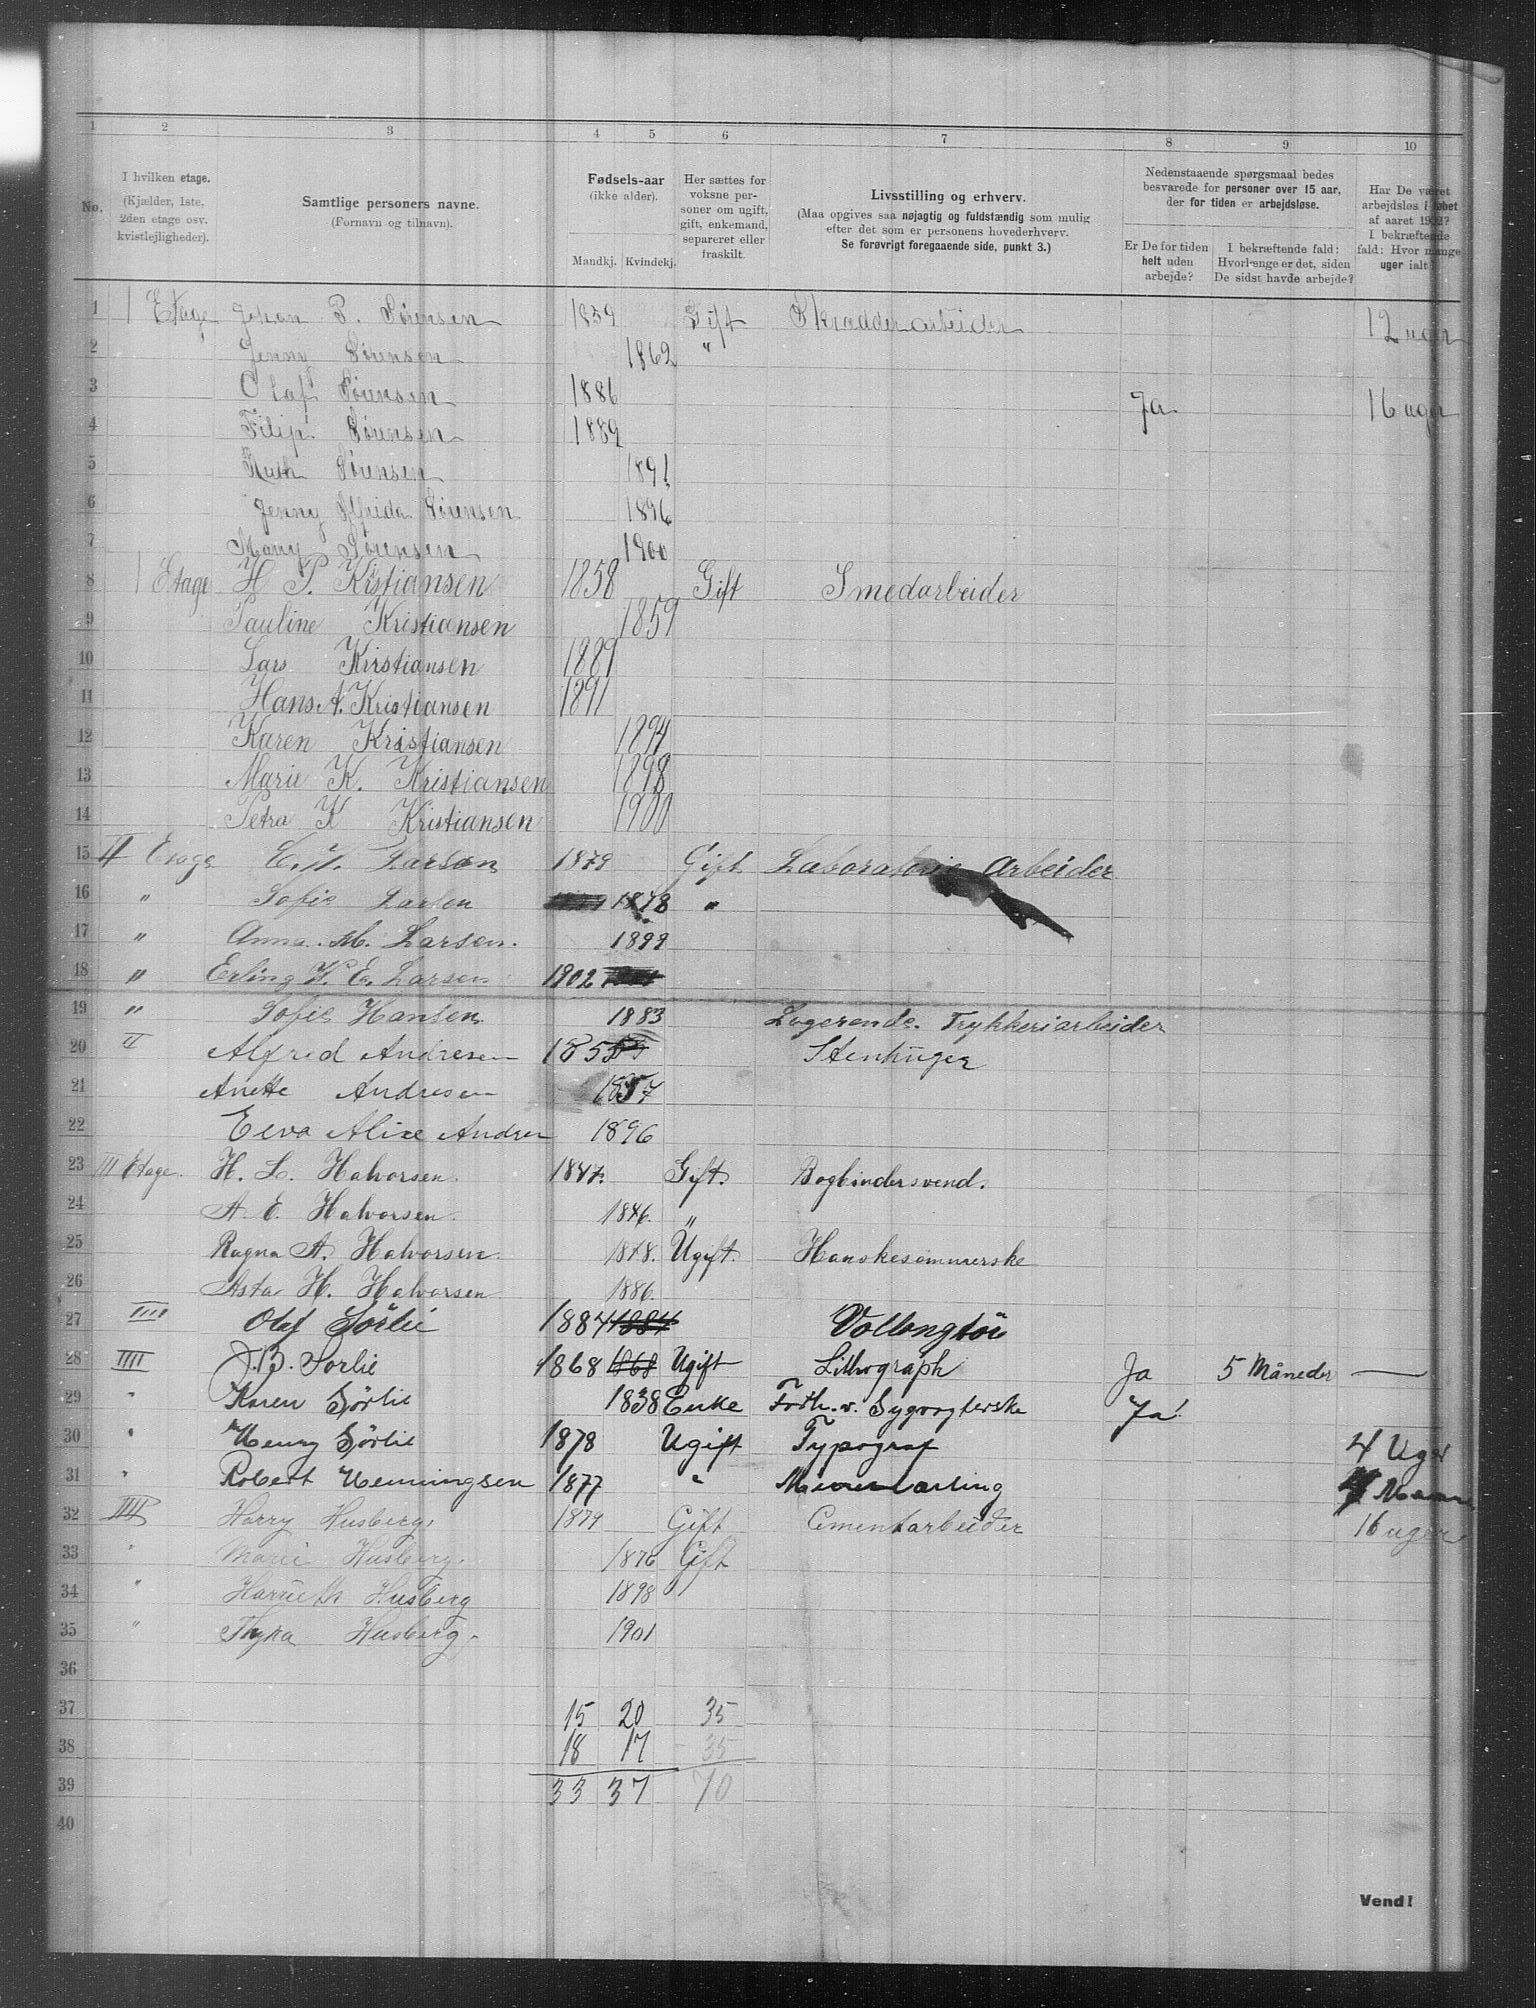 1 2 3 4 5 6 7 8 9 10
No.
I hvilken etage.
(Kjælder, 1ste,
2den etage osv.
kvistlejligheder).
Samtlige personers navne.
(Fornavn og tilnavn).
Fødsels-aar
(ikke alder).
Mandkj. Kvindekj.
Her sættes for
voksne per-
soner om ugift,
gift, enkemand,
separeret eller
fraskilt.
Livsstilling og erhverv.
(Maa opgives saa nøjagtig og fuldstændig som mulig
efter det som er personens hovederhverv.
Se forøvrigt foregaaende side, punkt 3.)
Nedenstaaende spørgsmaal bedes
besvarede for personer over 15 aar,
der for tiden er arbejdsløse.
Er De for tiden
helt uden
arbejde?
I bekræftende fald:
Hvorlænge er det, siden
De sidst havde arbejde?
Har De været
arbejdsløs i løbet
af aaret 1902?
I bekræftende
fald: Hvor mange
uger ialt?
1 1 Etage Johan P. Sørensen 1859 Gift Skrædderarbeider 12 uger
2 Jenny Sørensen 1862 "
3 Olaf Sørensen 1886 Ja 16 uger
4 Filip Sørensen 1889
5 Ruth Sørensen 1891
6 Jenny Alfrida Sørensen 1896
7 Mary Sørensen 1900
8 1 Etage H. P. Kristiansen 1858 Gift Smedarbeider
9 Pauline Kristiansen 1859
10 Lars Kristiansen 1889
11 Hans A. Kristiansen 1891
12 Karen Kristiansen 1894
13 Marie K. Kristiansen 1898
14 Petra K Kristiansen 1900
15 II Etage Larsen 1879 Gift Laboratorie Arbeider
16 " Sofie Larsen 1878 "
17 " Anna. M. Larsen. 1899
18 " Erling K. E. Larsen 1902
19 " Sofie Hansen 1883 Logerende. Trykkeriarbeider
20 II Alfred Andresen 1855 Stenhuger
21 Anette Andresen 1857
22 Eeva Alise Andren 1896
23 III Etage. H. L. Halvorsen. 1847. Gift. Bogbindersvend.
24 A. E. Halvorsen. 1846. "
25 Ragna A. Halvorsen. 1878. Ugift. Hanskesømmerske
26 Asta H. Halvorsen 1886.
27 IIII Olaf Sörlie 1884 1884 Vollongtör
28 IIII J.B. Sorlie 1868 1868 Ugift Lithograph Ja 5 Måneder —
29 " Karen Sörlie 1838 Enke Forh. v. Sygvogterske Ja!
30 " Henry Sörlie 1878 Ugift Typograf 4 Uger
31 " Robert Henningsen 1877 " Murerlærling 4
32 IIII Harry Husberg, 1879 Gift Cementarbeider 16 uger
33 " Marie Husberg. 1876 Gift
34 " Harrieth Husberg 1898
35 " Thyra Husberg. 1901
36
37 15 20 35
38 18 17 35
39 33 37 70
40
Vend!